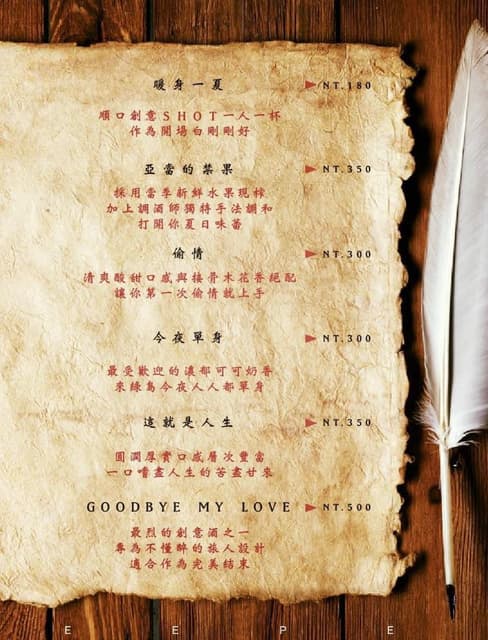 暖身一夏
NT.180
順口創意SHOT一人一杯
作為開場白剛剛好
亞當的禁果
NT.350
採用當季新鮮水果現榨
加上調酒師獨特手法調和
打開你夏日味蕾
偷情
NT.300
清爽酸甜口感與接骨木花香絕配
讓你第一次偷情就上手
今夜單身
NT.300
最受歡迎的濃郁可可奶香
來綠島今夜人人都單身
這就是人生
NT.350
圓潤厚實口感層次豐富
一口嚐盡人生的苦盡甘來
GOODBYE MY LOVE
NT.500
最烈的創意酒之一
專為不懂醉的旅人設計
適合作為完美結束
E E P E